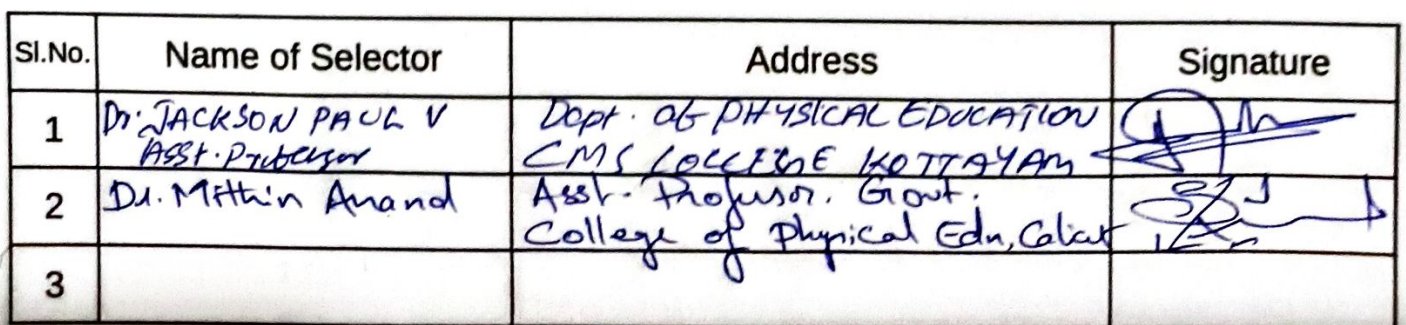 Sl.No. Name of Selector Address Signature
1 Dr. JACKSON PAUL V Dept. of PHYSICAL EDUCATION
Asst. Professor CMS COLLEGE KOTTAYAM
2 Dr. Mithin Anand Asst. Professor. Govt.
College of Physical Edn, Calicut
3